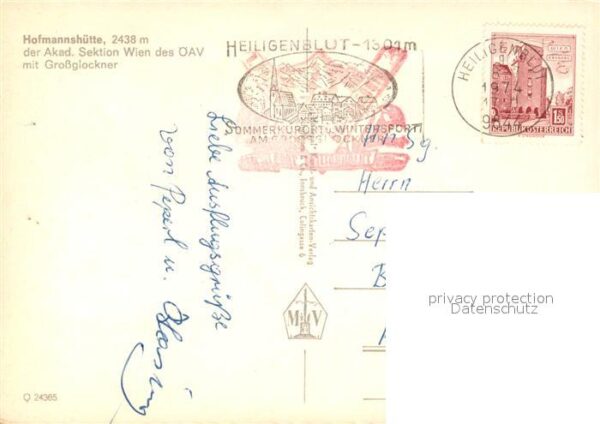 Hofmannshütte, 2438 m
der Akad. Sektion Wien des ÖAV
mit Großglockner
HEILIGENBLUT - 1301m
SOMMERKURORT u WINTERSPORT
AM GROSSGLOCKNER
HEILIGENBLUT
1974
REPUBLIK ÖSTERREICH
1.50
Liebe Ausflugsgrüße
von Peperl u.
und Ansichtskarten-Verlag
Innsbruck, Colingasse 6
Herrn
Sep
MV
privacy protection
Datenschutz
Q 24365